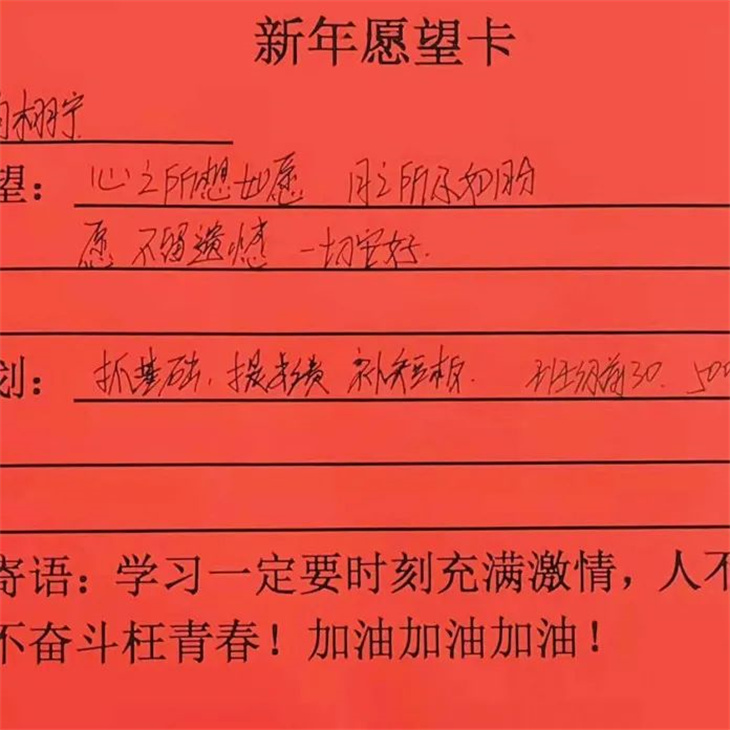 新年愿望卡
栩宁
望：心之所想如愿 目之所示如盼
愿 不留遗憾 一切安好.
划：抓基础, 提成绩 补短板. 班级前30. 500
寄语：学习一定要时刻充满激情，人不
不奋斗枉青春！加油加油加油！